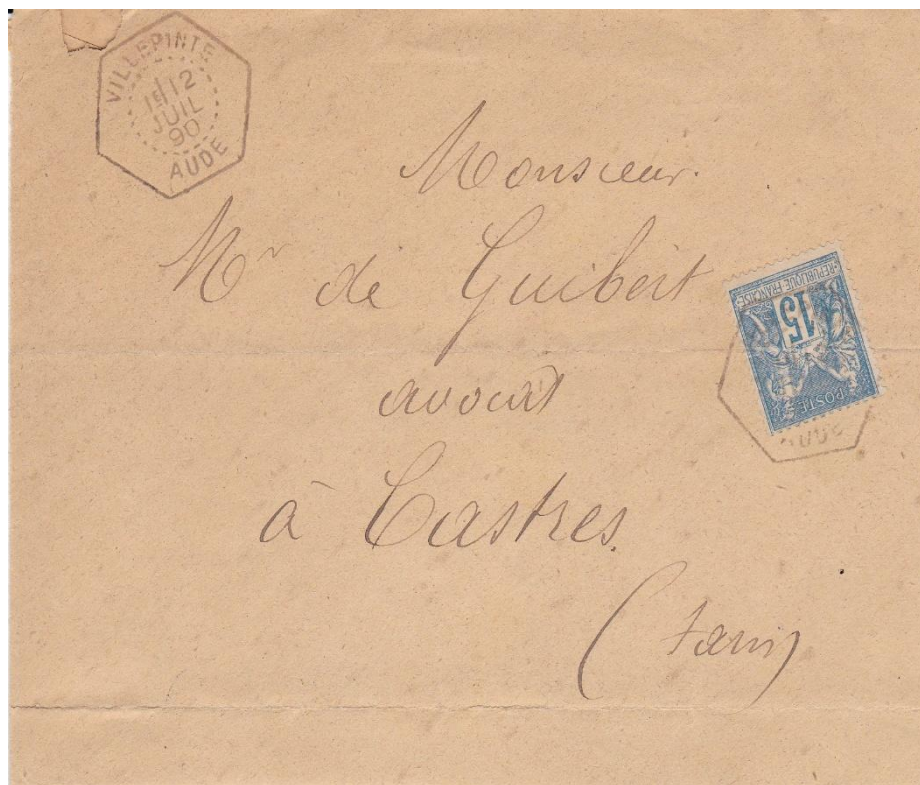 VILLEPINTE
1E/12
JUIL
90
AUDE
Monsieur.
Mr de Guibert
avocat
à Castres.
(Tarn)
REPUBLIQUE FRANCAISE
15
POSTE
AUDE